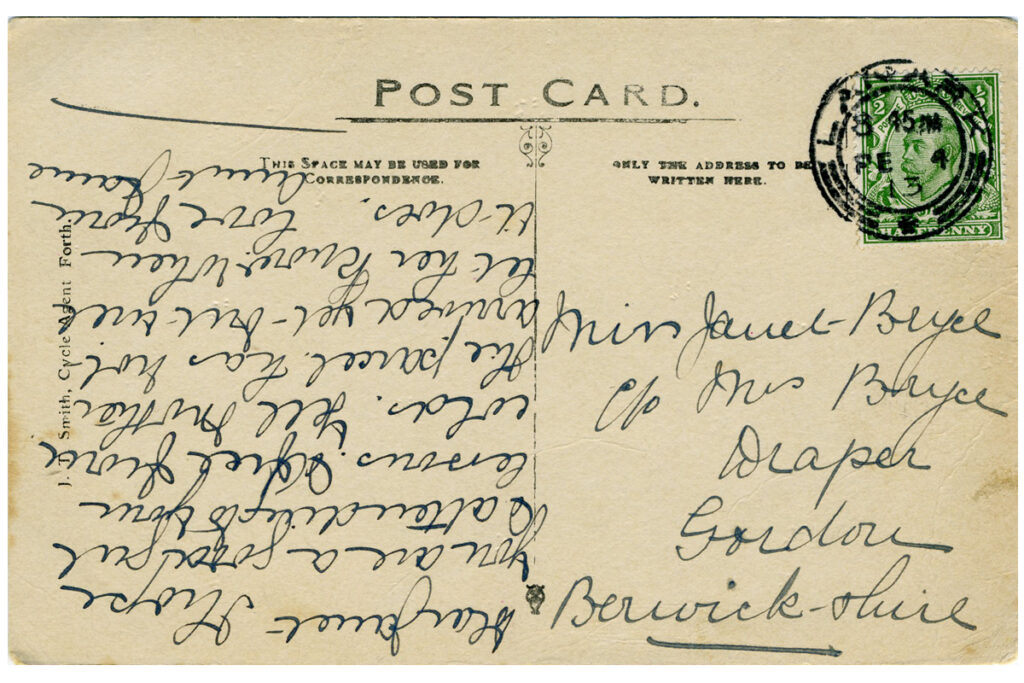 POST CARD.
THIS SPACE MAY BE USED FOR
CORRESPONDENCE.
ONLY THE ADDRESS TO BE
WRITTEN HERE.
LANARK
8 45AM
DE 4
13
½ ½
HALFPENNY
J. D. Smith, Cycle Agent Forth.
Dear Janet Hope
you are a good girl
& attending to your
lessons. & free from
colds. Tell Mother
the parcel has not
arrived yet but
let her know when
it does. love from
Aunt Jane
Miss Janet Bryce
c/o Mrs Bryce
Draper
Gordon
Berwick-shire